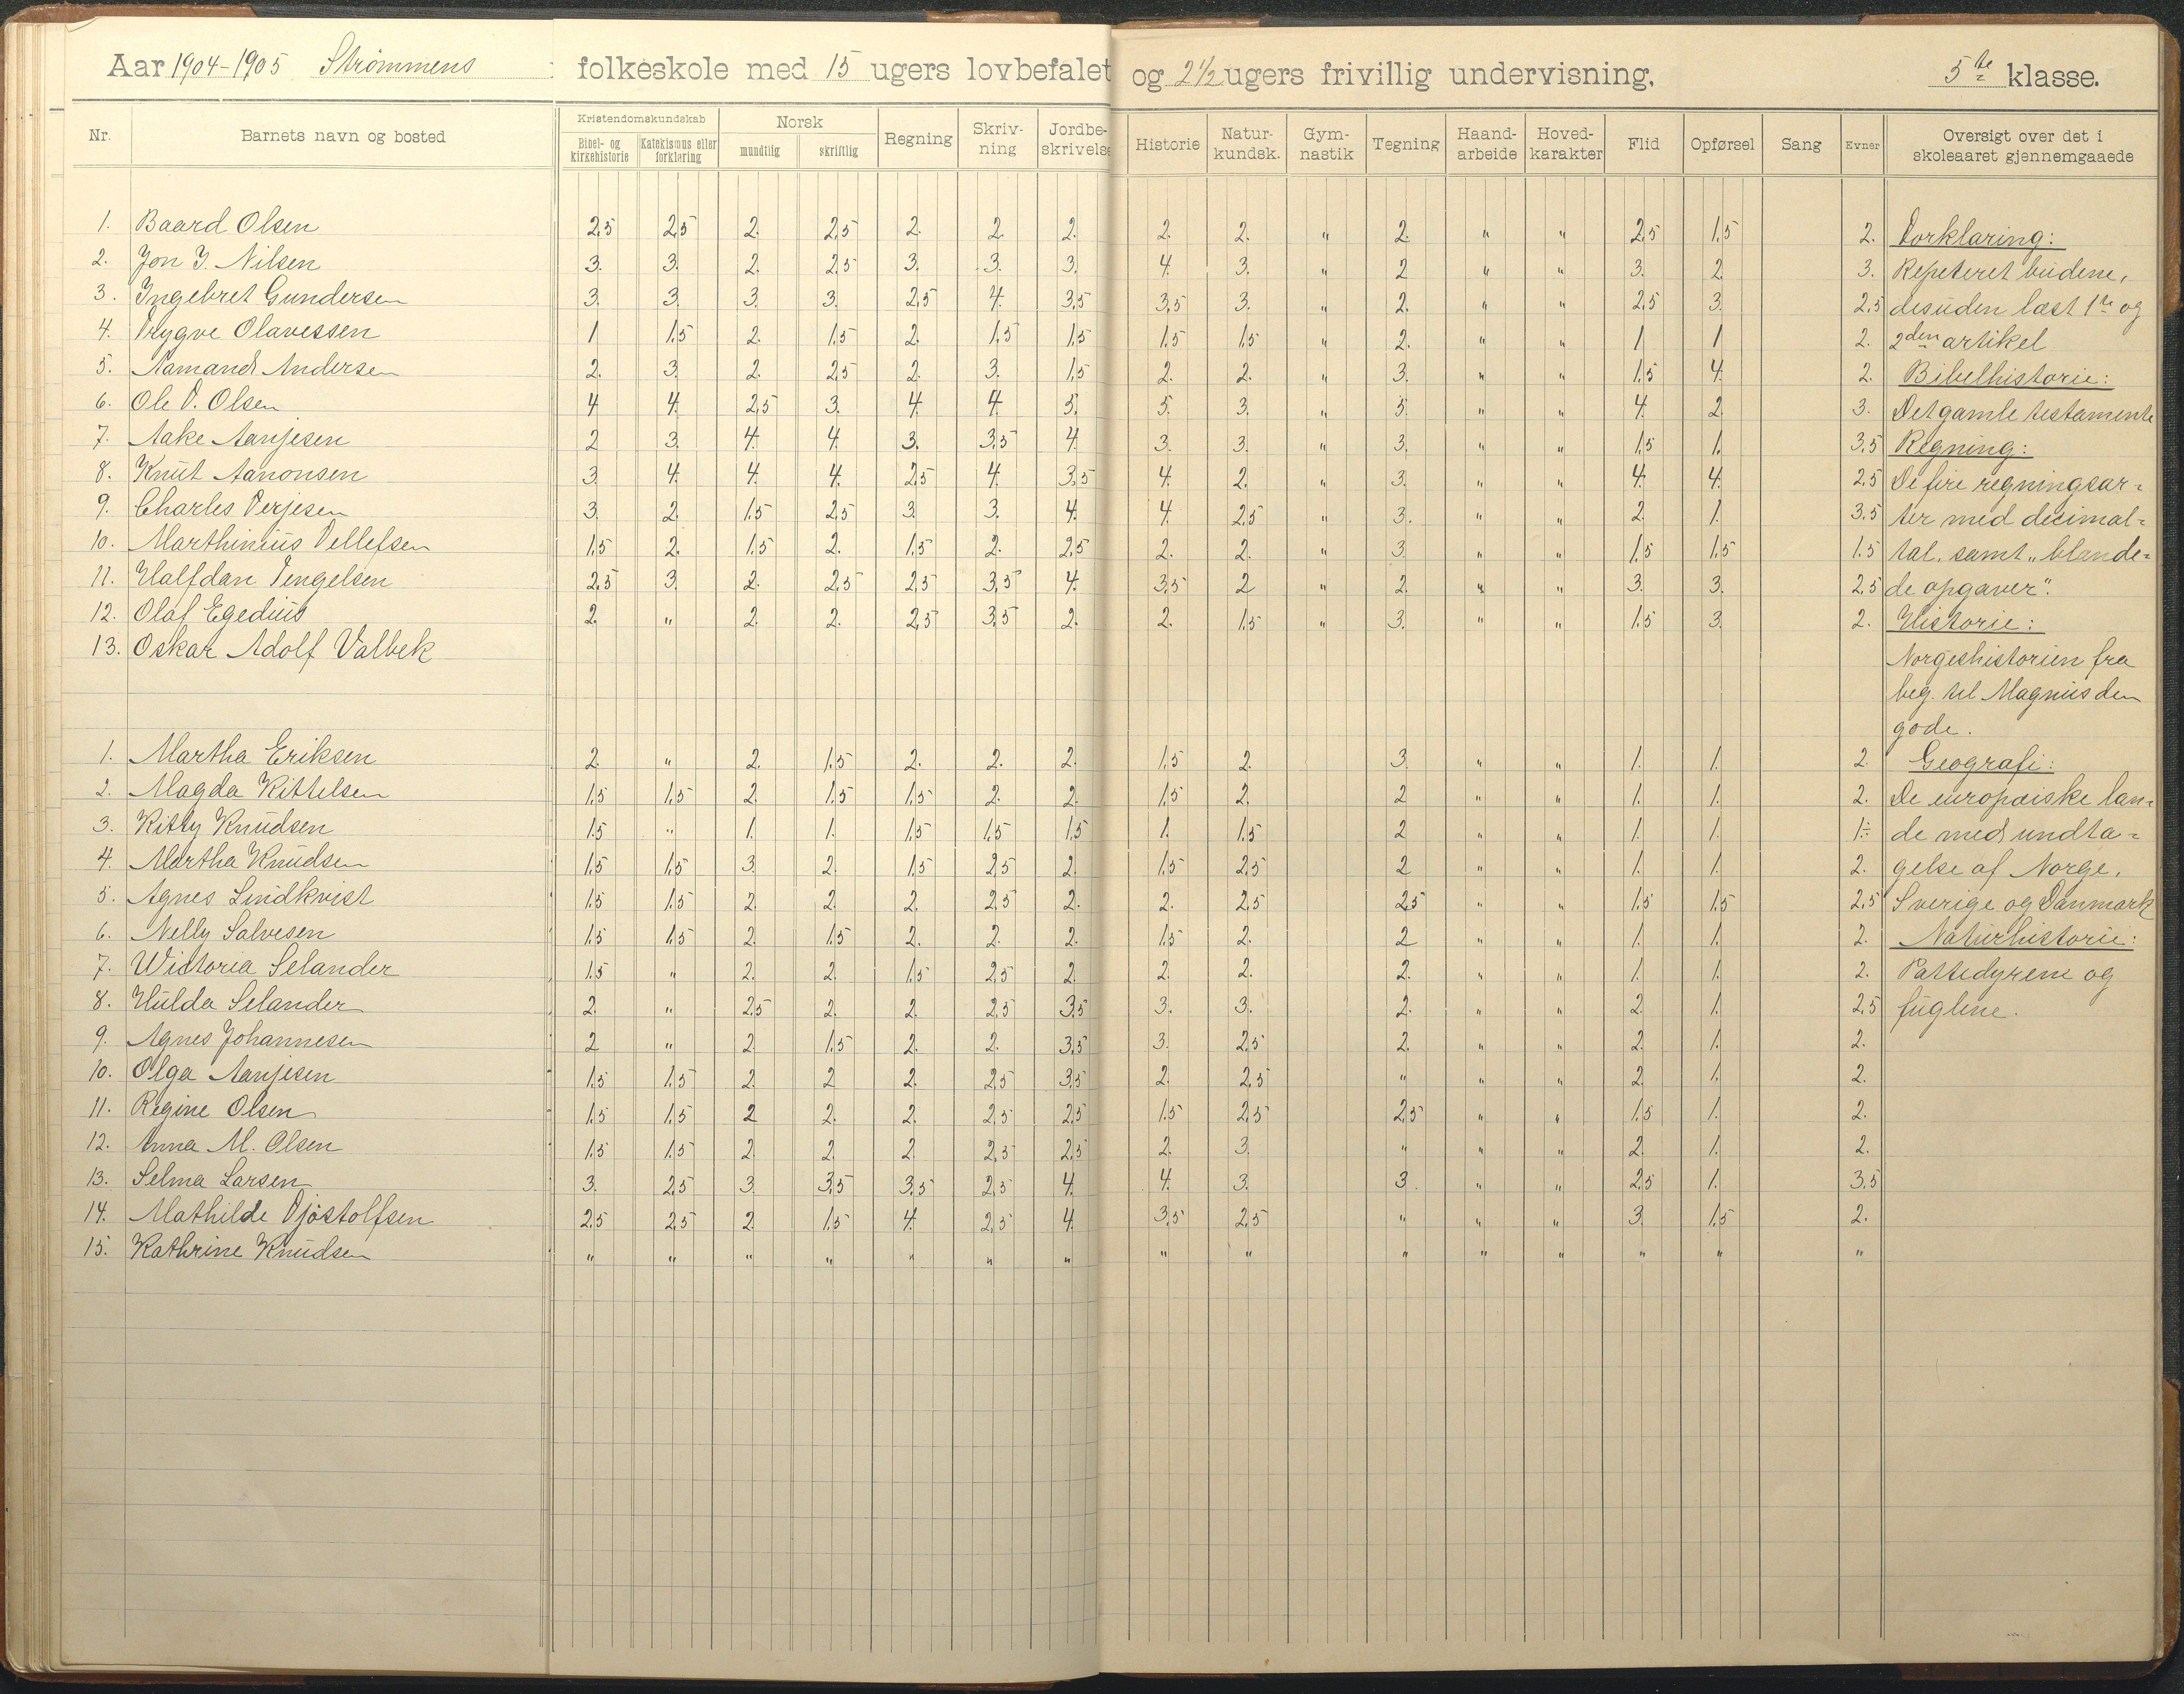 Aar 1904-1905 Strømmens folkeskole med 15 ugers lovbefalet og 2 1/2 ugers frivillig undervisning, 5te klasse.
Nr. Barnets navn og bosted Kristendomskundskab Norsk Regning Skriv-ning Jordbe-skrivelse Historie Natur-kundsk. Gym-nastik Tegning Haand-arbeide Hoved-karakter Flid Opførsel Sang Evner Oversigt over det i skoleaaret gjennemgaaede
Bibel- og kirkehistorie Katekismus eller forklaring mundtlig skriftlig
1. Baard Olsen 2,5 2,5 2. 2,5 2. 2. 2. 2. 2. " 2. " " 2,5 1,5 2. Forklaring:
2. Jon J. Nilsen 3. 3. 2. 2,5 3. 3. 3. 4. 3. " 2 " " 3. 2. 3. Repeteret budene,
3. Ingebret Gundersen 3. 3. 3. 3. 2,5 4. 3,5 3,5 3. " 2. " " 2,5 3. 2,5 desuden læst 1ste og
4. Trygve Olavessen 1 1,5 2. 1,5 2. 1,5 1,5 1,5 1,5 " 2. " " 1 1 2. 2den artikel
5. Aamand Andersen 2. 3. 2. 2,5 2. 3. 1,5 2. 2. " 3. " " 1,5 4. 2. Bibelhistorie:
6. Ole T. Olsen 4 4. 2,5 3. 4. 4. 5. 5. 3. " 5. " " 4. 2. 3. Det gamle testamente
7. Aake Aanjesen 2 3. 4. 4. 3. 3,5 4. 3. 3. " 3. " " 1,5 1. 3,5 Regning:
8. Knut Aanonsen 3. 4. 4. 4. 2,5 4. 3,5 4. 2. " 3. " " 4. 4. 2,5 De fire regningsar-
9. Charles Terjesen 3. 2. 1,5 2,5 3. 3. 4. 4. 2,5 " 3. " " 2. 1. 3,5 ter med decimal-
10. Marthinius Tellefsen 1,5 2. 1,5 2. 1,5 2. 2,5 2. 2. " 3. " " 1,5 1,5 1,5 tal. samt "blande-
11. Halfdan Tengelsen 2,5 3. 2. 2,5 2,5 3,5 4. 3,5 2 " 2. " " 3. 3. 2,5 de opgaver".
12. Olaf Egedius 2. " 2. 2. 2,5 3,5 2. 2. 1,5 " 3. " " 1,5 3. 2. Historie:
13. Oskar Adolf Valbek Norgeshistorien fra
beg. til Magnus den
gode.
1. Martha Eriksen 2. " 2. 1,5 2. 2. 2. 1,5 2. 3. " " 1. 1. 2. Geografi:
2. Magda Kittelsen 1,5 1,5 2. 1,5 1,5 2. 2. 1,5 2. 2 " " 1. 1. 2. De europæiske lan-
3. Kitty Knudsen 1,5 " 1. 1. 1,5 1,5 1,5 1. 1,5 2 " " 1. 1. 1÷ de med undta-
4. Martha Knudsen 1,5 1,5 3. 2. 1,5 2,5 2. 1,5 2,5 2 " " 1. 1. 2. gelse af Norge,
5. Agnes Lindkvist 1,5 1,5 2. 2. 2. 2,5 2. 2. 2,5 2,5 " " 1,5 1,5 2,5 Sverige og Danmark
6. Nelly Salvesen 1,5 1,5 2. 1,5 2. 2. 2. 1,5 2. 2 " " 1. 1. 2. Naturhistorie:
7. Wictoria Selander 1,5 " 2. 2. 1,5 2,5 2. 2. 2. 2. " " 1. 1. 2. Pattedyrene og
8. Hulda Selander 2. " 2,5 2. 2. 2,5 3,5 3. 3. 2. " " 2. 1. 2,5 fuglene.
9. Agnes Johannesen 2 " 2. 1,5 2. 2. 3,5 3. 2,5 2. " " 2. 1. 2.
10. Olga Aanjesen 1,5 1,5 2. 2 2. 2,5 3,5 2. 2,5 " " " 2. 1. 2.
11. Regine Olsen 1,5 1,5 2 2. 2. 2,5 2,5 1,5 2,5 2,5 " " 1,5 1. 2.
12. Anna M. Olsen 1,5 1,5 2. 2. 2. 2,5 2,5 2. 3. " " " 2. 1. 2.
13. Selma Larsen 3. 2,5 3. 3,5 3,5 2,5 4. 4. 3. 3. " " 2,5 1. 3,5
14. Mathilde Tjøstolfsen 2,5 2,5 2. 1,5 4. 2,5 4. 3,5 2,5 " " " 3. 1,5 2.
15. Kathrine Knudsen " " " " " " " " " " " " " " "